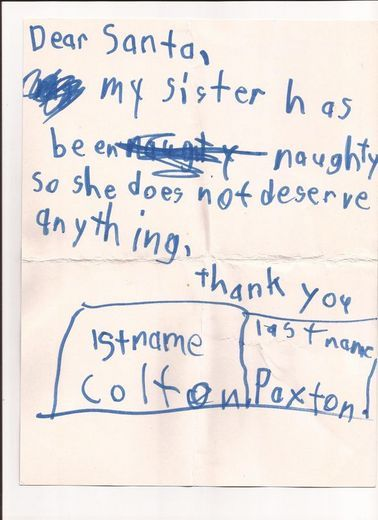 Dear Santa,
my sister has
been naughty
so she does not deserve
anything,
thank you
1st name last name
Colton Paxton